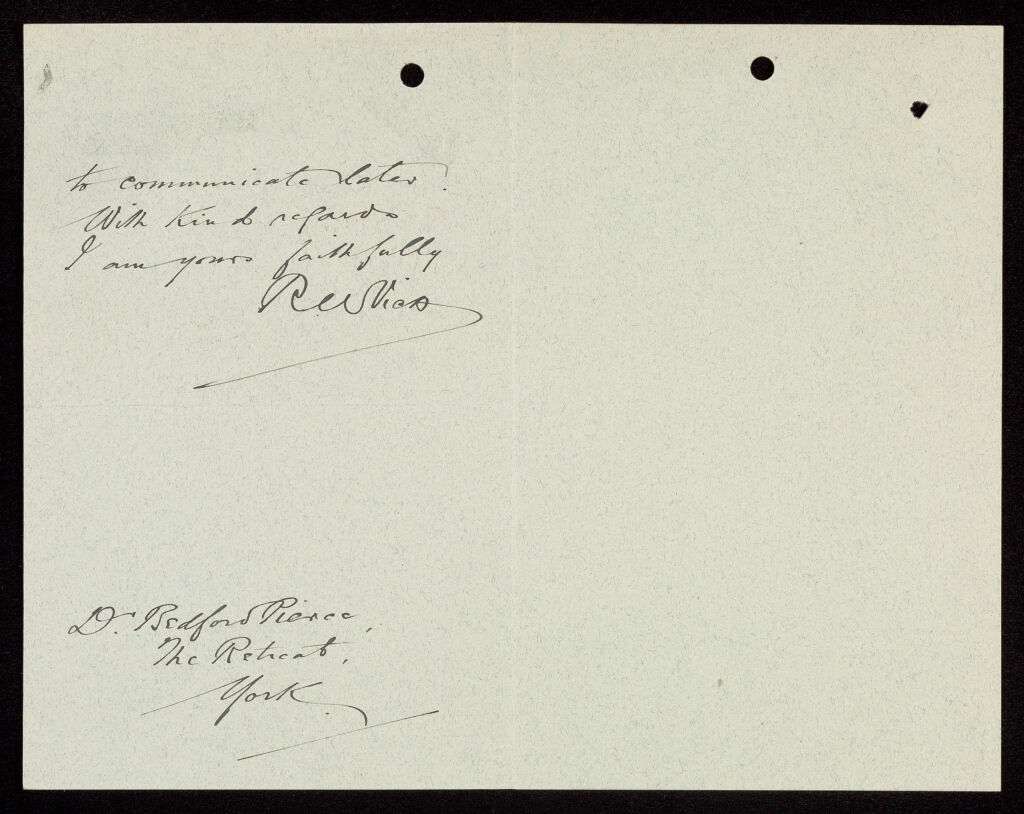 to communicate later.
With Kind regards
I am yours faithfully
Dr. Bedford Pierce,
The Retreat,
York.